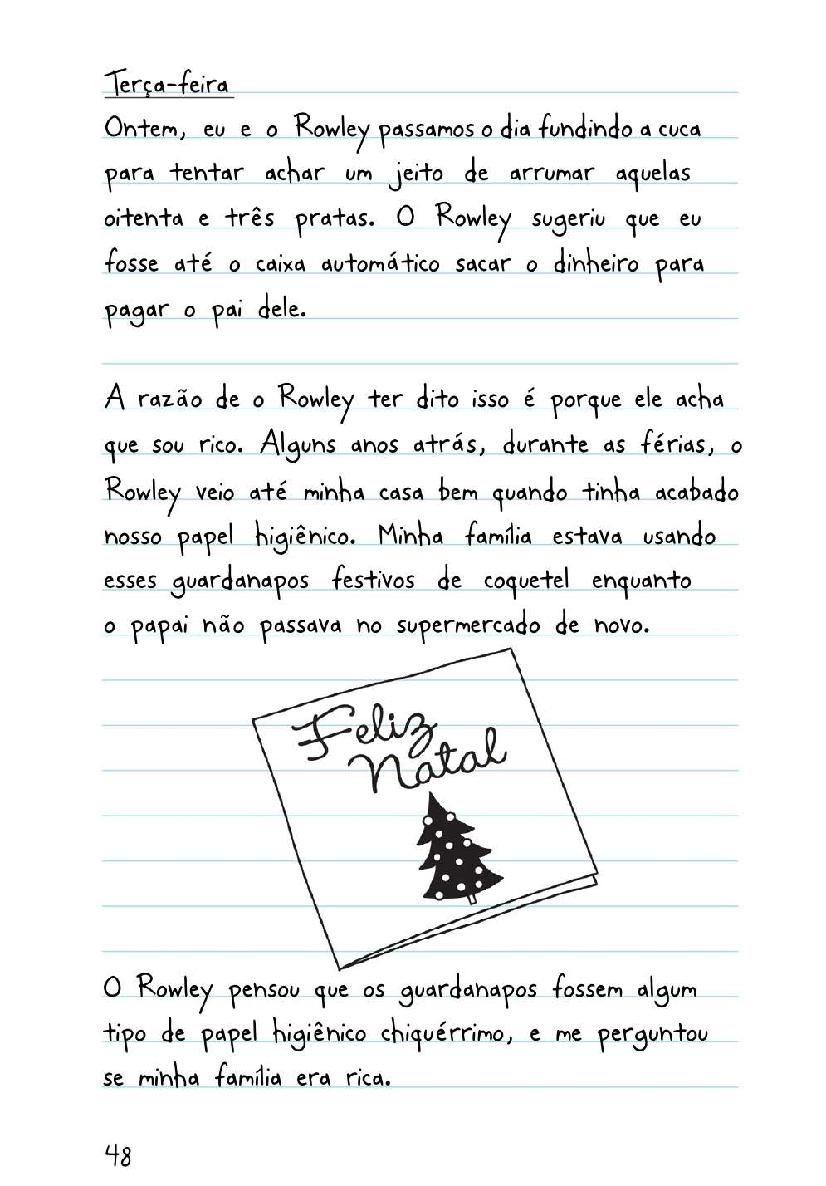 Terça-feira
Ontem, eu e o Rowley passamos o dia fundindo a cuca
para tentar achar um jeito de arrumar aquelas
oitenta e três pratas. O Rowley sugeriu que eu
fosse até o caixa automático sacar o dinheiro para
pagar o pai dele.
A razão de o Rowley ter dito isso é porque ele acha
que sou rico. Alguns anos atrás, durante as férias, o
Rowley veio até minha casa bem quando tinha acabado
nosso papel higiênico. Minha família estava usando
esses guardanapos festivos de coquetel enquanto
o papai não passava no supermercado de novo.
Feliz
Natal
O Rowley pensou que os guardanapos fossem algum
tipo de papel higiênico chiquérrimo, e me perguntou
se minha família era rica.
48